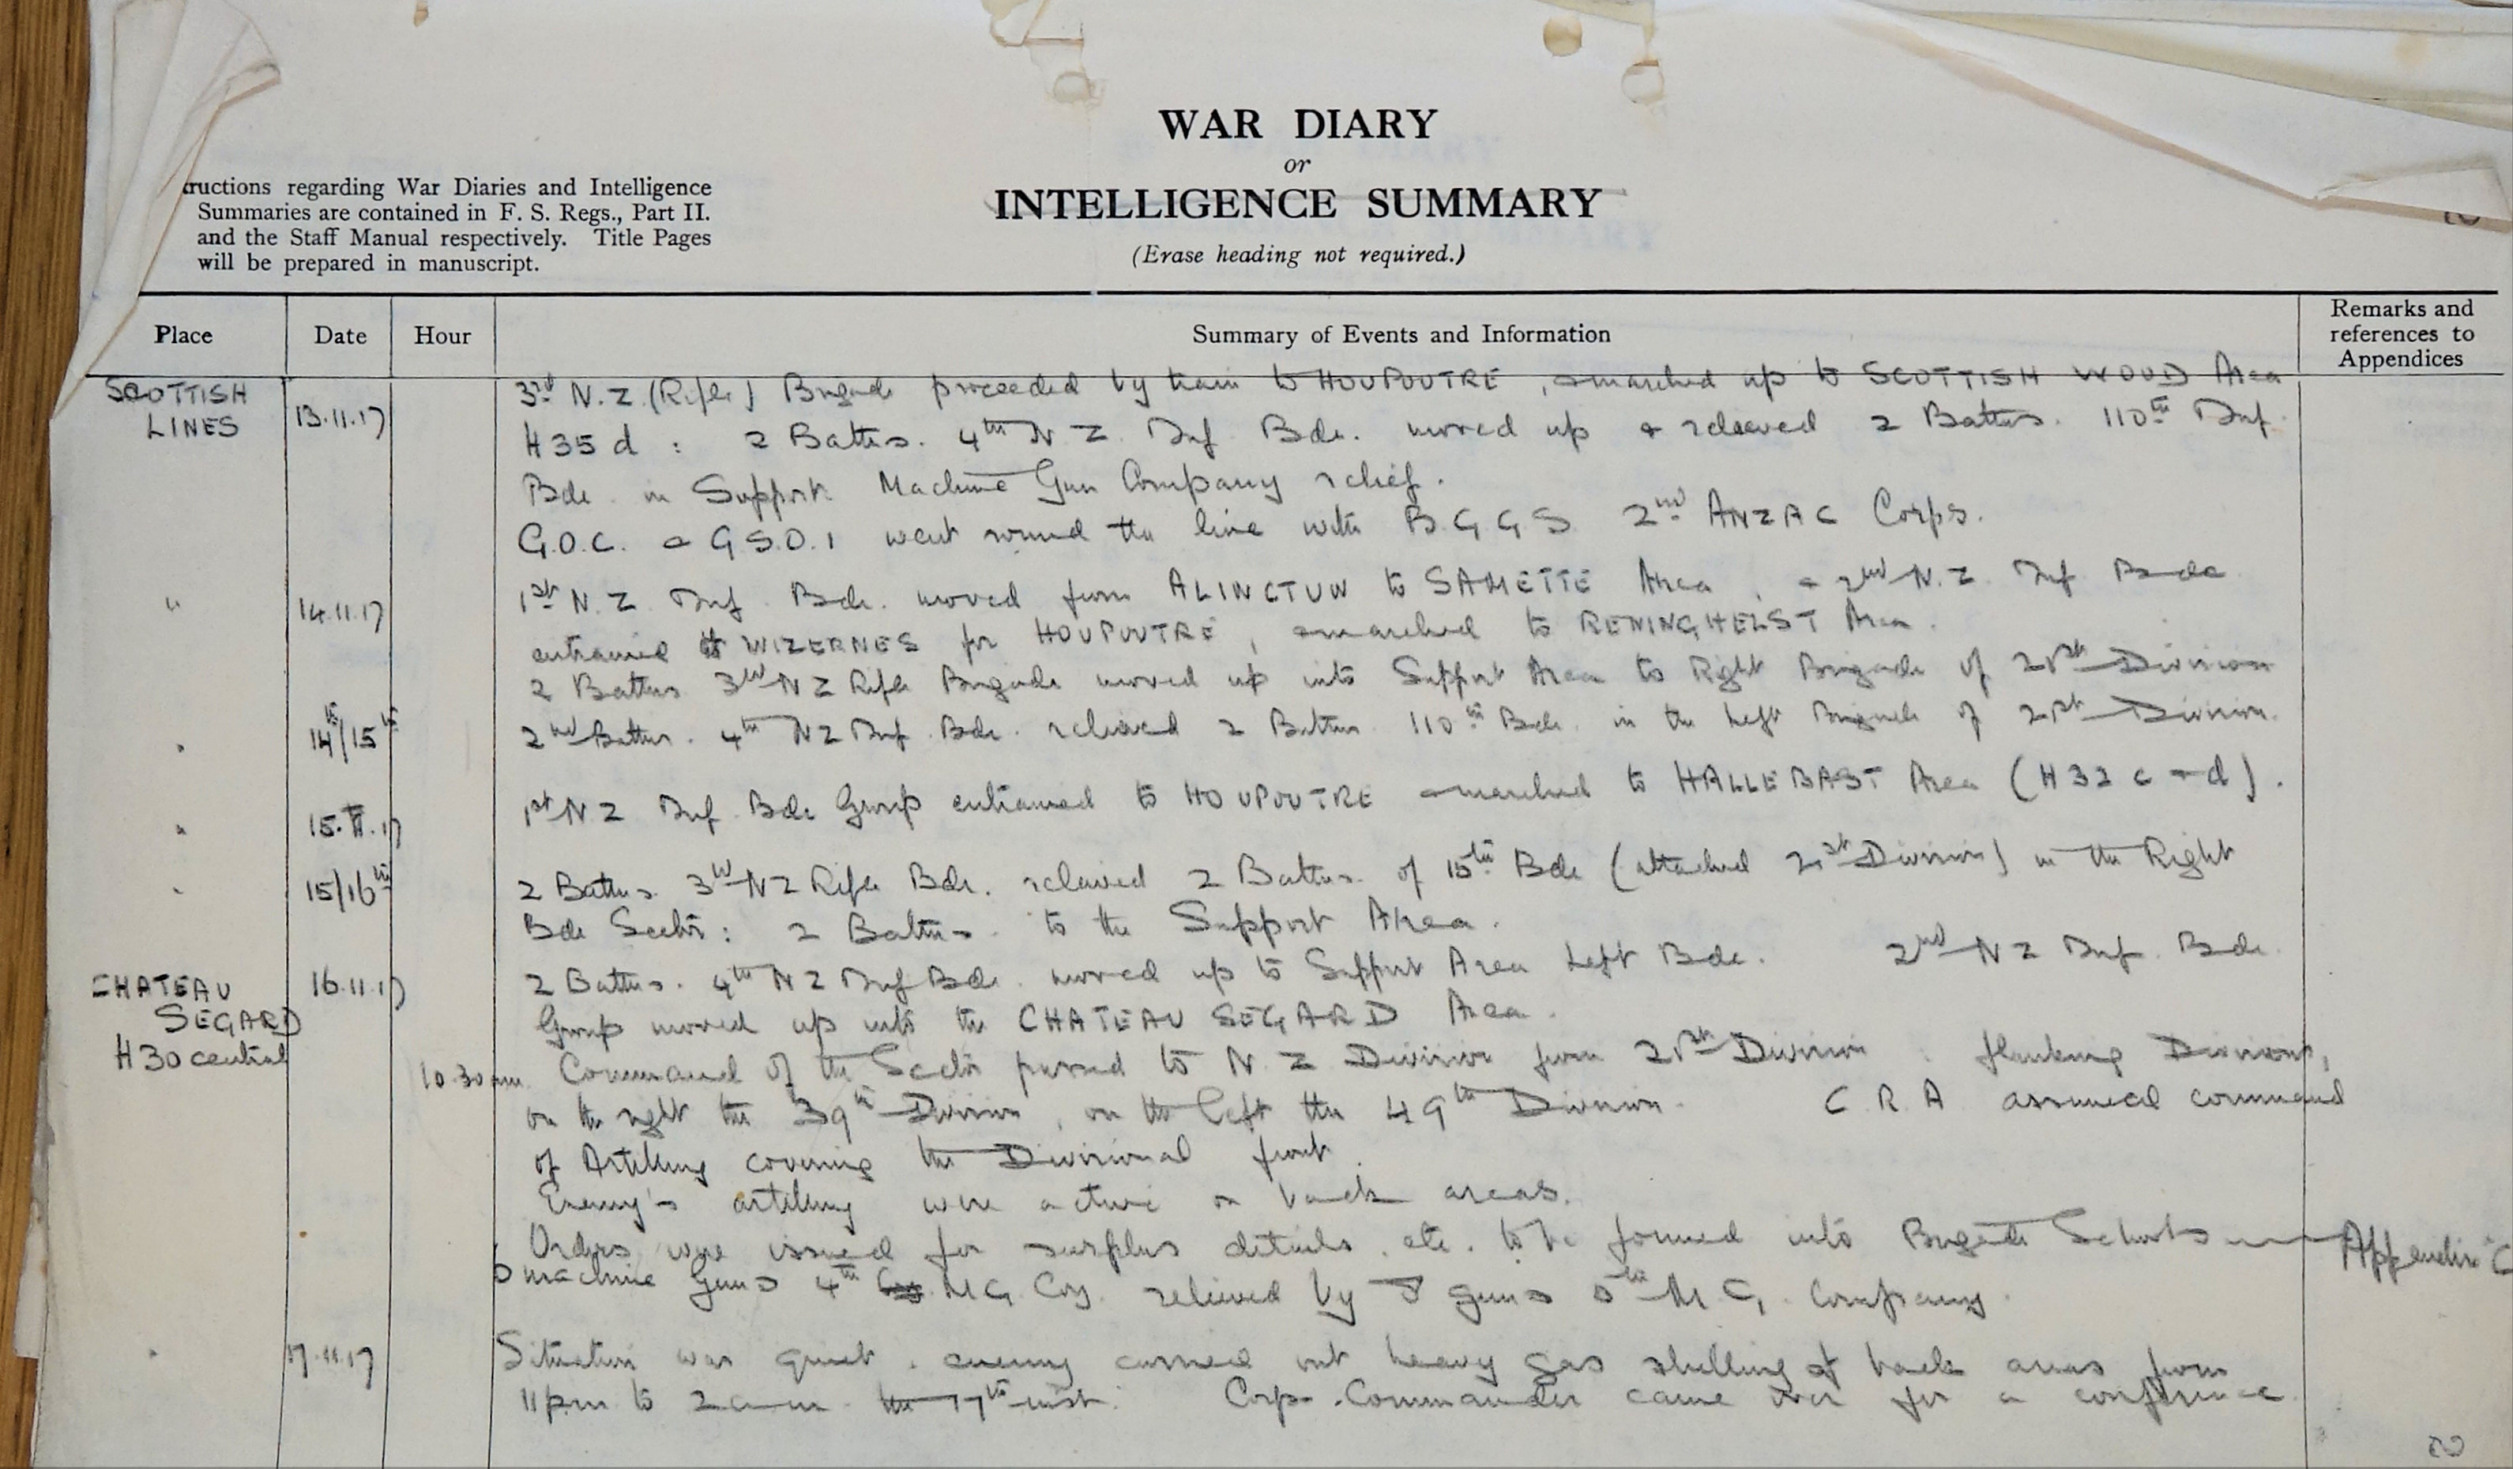 WAR DIARY
or
INTELLIGENCE SUMMARY
(Erase heading not required.)
tructions regarding War Diaries and Intelligence
Summaries are contained in F. S. Regs., Part II.
and the Staff Manual respectively. Title Pages
will be prepared in manuscript.
Place Date Hour Summary of Events and Information Remarks and references to Appendices
SCOTTISH LINES 13.11.17 3rd N.Z. (Rifle) Brigade proceeded by train to HOUPOUTRE, & marched up to SCOTTISH WOOD Area
H35d : 2 Battns. 4th N Z Inf Bde. moved up & relieved 2 Battns. 110th Inf.
Bde in Support Machine Gun Company relief.
G.O.C. & G.S.O.1 went round the line with B.G.G.S 2nd ANZAC Corps.
" 14.11.17 1st N.Z. Inf. Bde. moved from ALINCTUN to SAMETTE Area, & 2nd N.Z. Inf Bde
entrained at WIZERNES for HOUPOUTRE, & marched to RENINGHELST Area.
2 Battns 3rd N Z Rifle Brigade moved up into Support Area to Right Brigade of 21st Division
" 14th/15th 2nd Battns. 4th N Z Inf. Bde. relieved 2 Battns 110th Bde. in the Left Brigade of 21st Division.
" 15.11.17 1st N Z Inf. Bde Group entrained to HOUPOUTRE & marched to HALLEBAST Area (H32 c & d).
" 15/16th 2 Battns. 3rd N Z Rifle Bde. relieved 2 Battns. of 15th Bde (attached 21st Division) in the Right
Bde Sector: 2 Battns. to the Support Area.
CHATEAU SEGARD H30 central 16.11.17 2 Battns. 4th N Z Inf Bde. moved up to Support Area Left Bde. 2nd N Z Inf. Bde.
Group moved up into the CHATEAU SEGARD Area.
10.30 am. Command of the Sector passed to N.Z. Division from 21st Division. flanking Divisions,
on the right the 39th Division, on the left the 49th Division. C.R.A assumed command
of Artillery covering the Divisional front.
Enemy's artillery were active on back areas.
Orders were issued for surplus details. etc. to be formed into Brigade Schools Appendix "C
machine guns 4th M G Coy. relieved by 8 guns M.G. Company.
" 17.11.17 Situation was quiet. enemy carried out heavy gas shelling of back areas from
11pm to 2 am. the 17th inst. Corps. Commander came over for a conference.
2